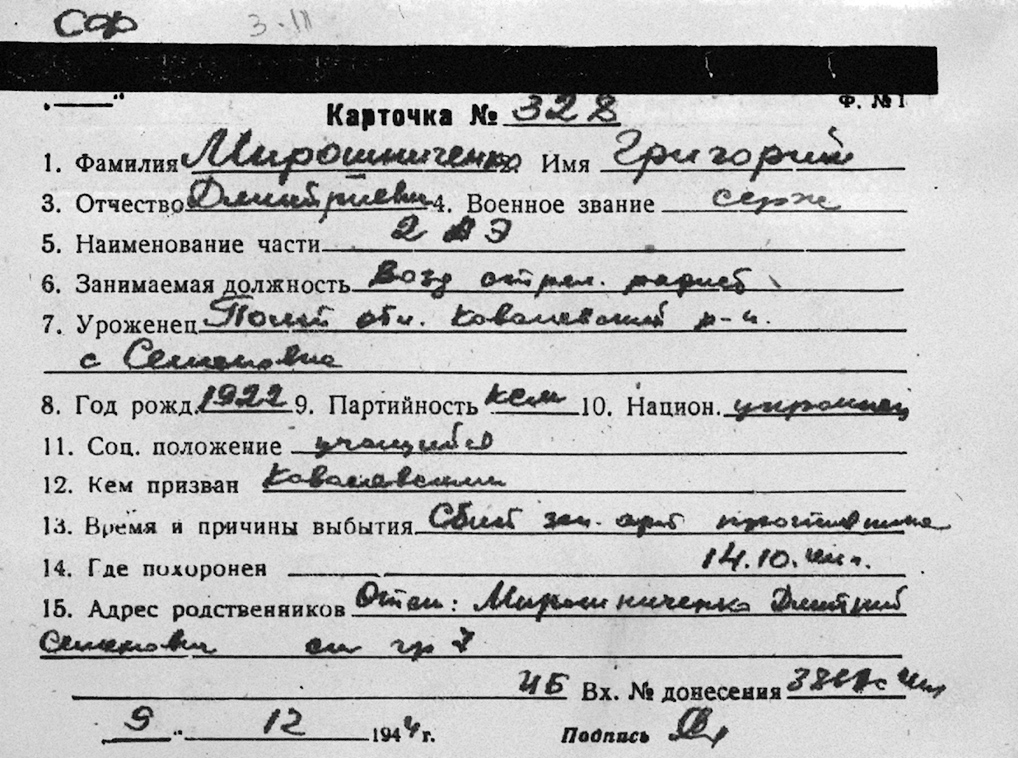 Сар 3-III
„ “ Ф. № 1
Карточка № 328
1. Фамилия Мирошниченко Имя Григорий
3. Отчество Дмитриевич 4. Военное звание серж
5. Наименование части 2 АЭ
6. Занимаемая должность Возд стрел. радист
7. Уроженец Полт обл. Ковалевский р-н.
с Семеновка
8. Год рожд. 1922 9. Партийность 10. Национ. украинец
11. Соц. положение учащийся
12. Кем призван Ковалевским
13. Время и причины выбытия Сбит зен. арт противника
14. Где похоронен 14.10.
15. Адрес родственников Отец: Мирошниченко Дмитрий
Семенович гр 7
Вх. № донесения
9 “ 12 1944 г. Подпись